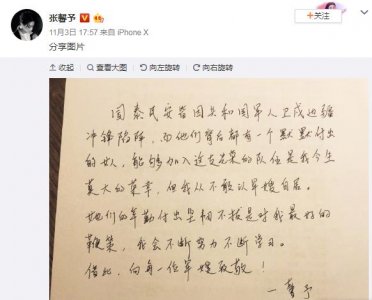 张馨予
+关注
11月3日 17:57 来自 iPhone X
分享图片
收起 查看大图 向左旋转 向右旋转
国泰民安皆因共和国军人卫戍边疆
冲锋陷阵，而他们背后都有一个默默付出
的女人，能够加入这支光荣的队伍是我今生
莫大的荣幸，但我从不敢以军嫂自居。
她们的辛勤付出坚韧不拔是对我最好的
鞭策，我会不断努力不断学习。
借此，向每一位军嫂致敬！
一馨予